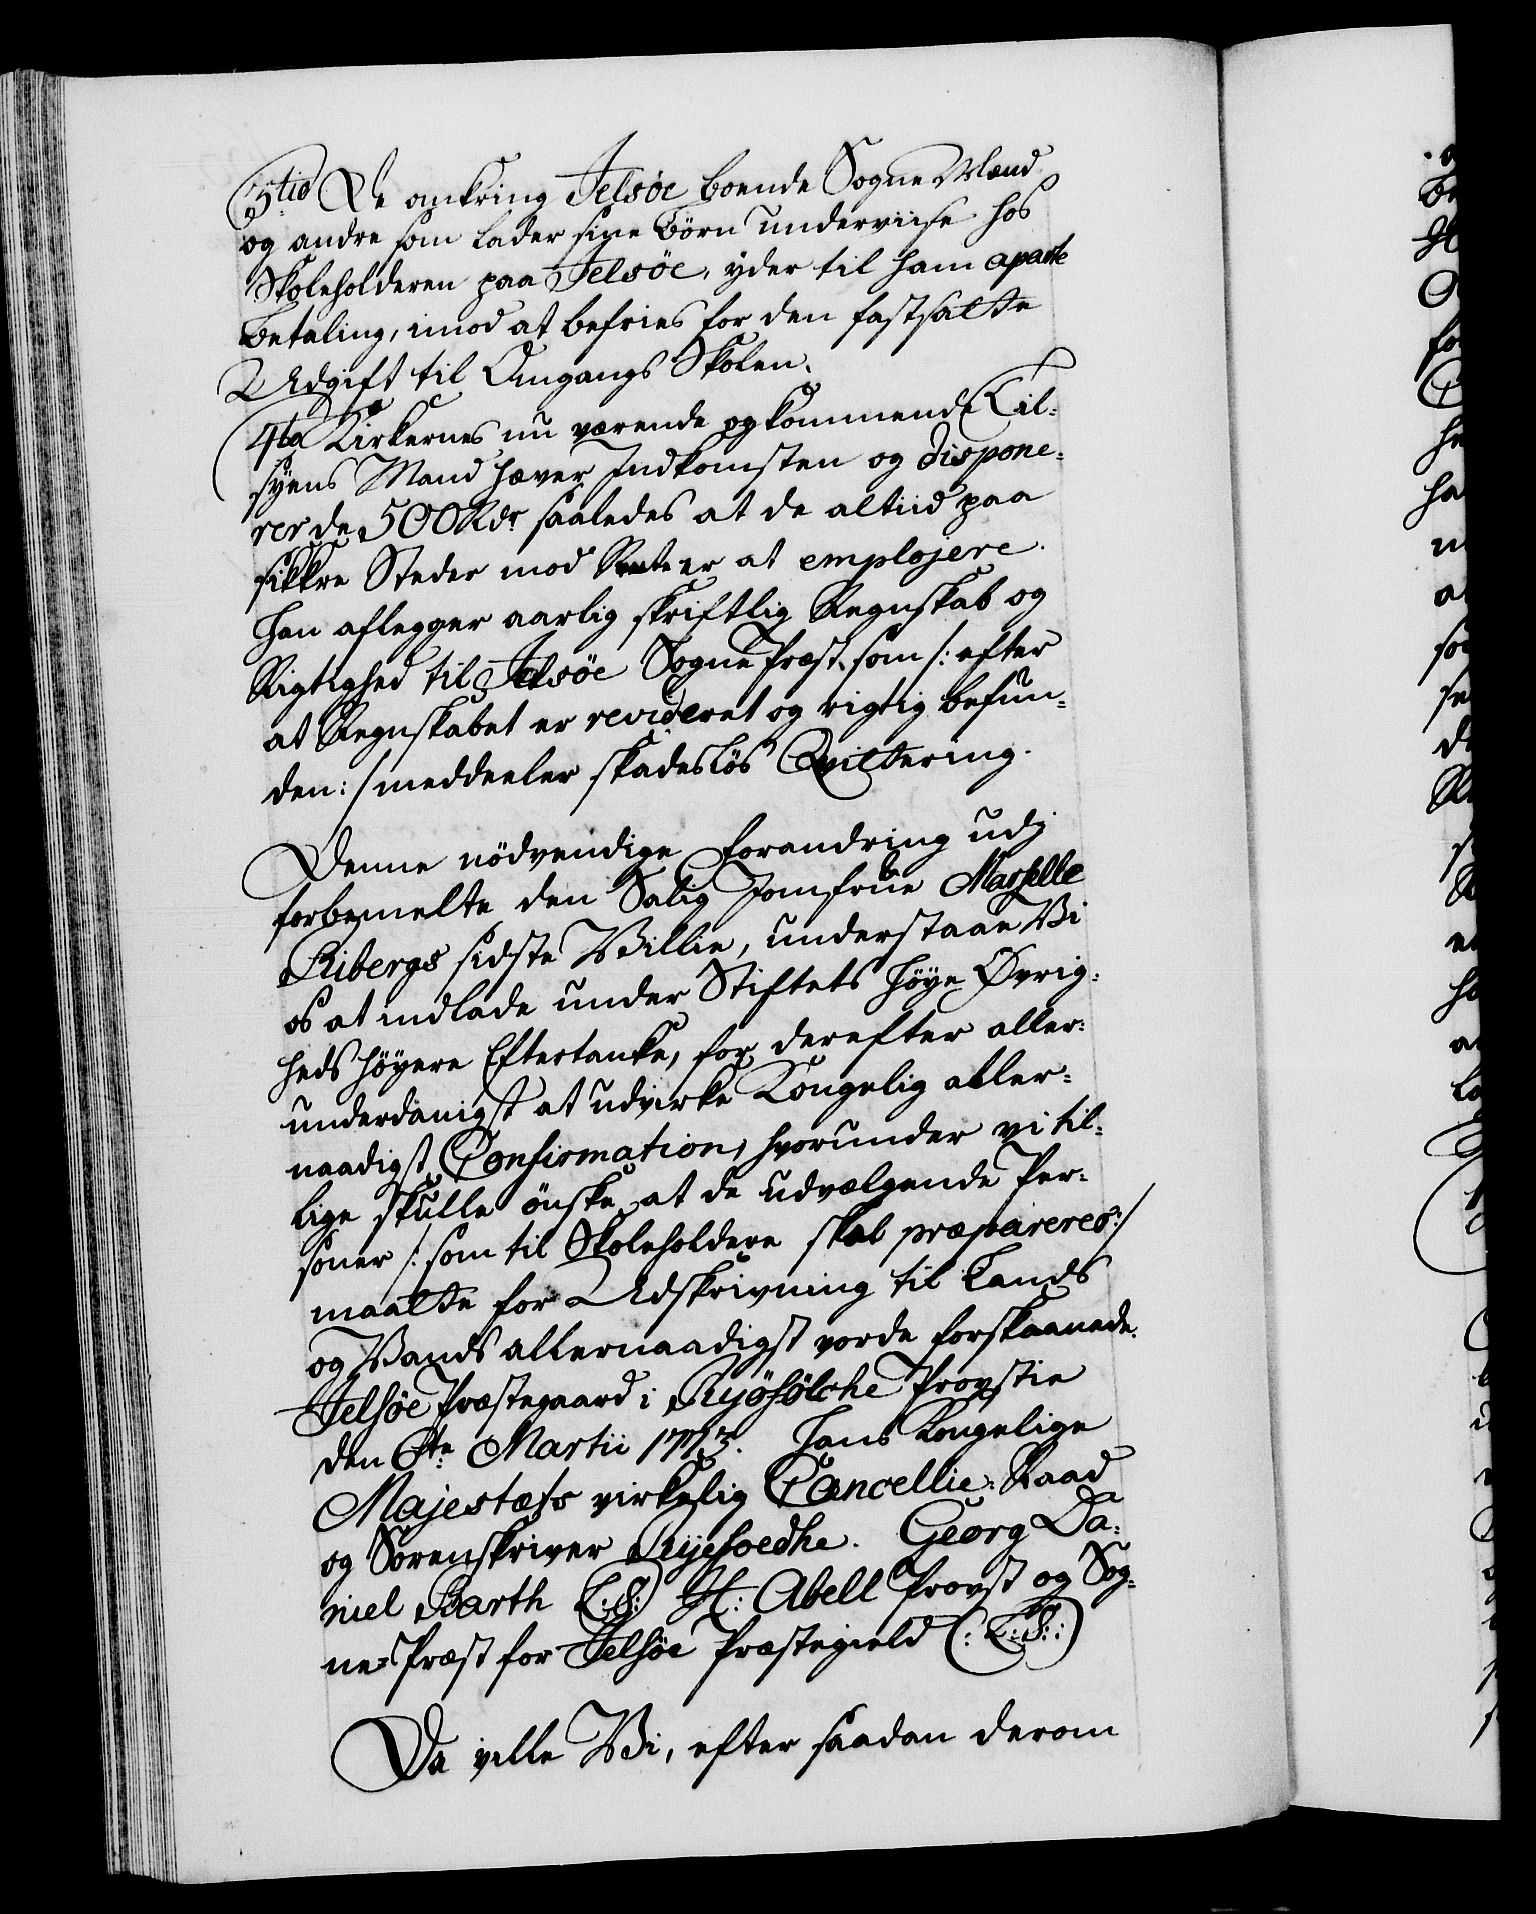 3tio De omkring Jelsöe boende Sogne Mænd
og andre som lader sine Börn underviise hos
Skoleholderen paa Jelsöe, yder til ham aparte
Betaling, imod at befries for den fastsatte
Udgift til Omgangs Skolen.
4to Kirkernes nu værende og kommende Til-
syens Mand hæver Indkomsten og dispone-
rer de 500 Rdr saaledes at de altiid paa
sikkre Steder mod Renter at employere.
Han aflegger aarlig skriftlig Regnskab og
Rigtighed til Jelsöe Sogne Præst, som /: efter
at Regnskabet er revideret og rigtig befun-
den :/ meddeeler skadeslös Qvittering.
Denne nödvendige Forandring udj
forbemelte den Salig Jomfrue Marselle
Ribergs sidste Villie, understaae Vi
os at indlade under Stiftets Höye Øvrig-
heds höyere Eftertanke, for derefter aller-
underdanigst at udvirke Kongelig aller-
naadigst Confirmation, hvorunder vi til-
lige skulle önske at de udvælgende Per-
soner /: som til Skoleholdere skal præpareres :/
maatte for Udskrivning til Lands
og Vands allernaadigst vorde forskaanede.
Jelsöe Præstegaard i Ryöfölche Provstie
den 6te Martii 1773. Hans Kongelige
Majestæts virkelig Cancellie-Raad
og Sorenskriver Ryefoedhe. Georg Da-
niel Barth (L:S:) H: Abell Provst og Sog-
ne-Præst for Jelsöe Præstegield (: L:S: :)
Da ville Vi, efter saadan derom